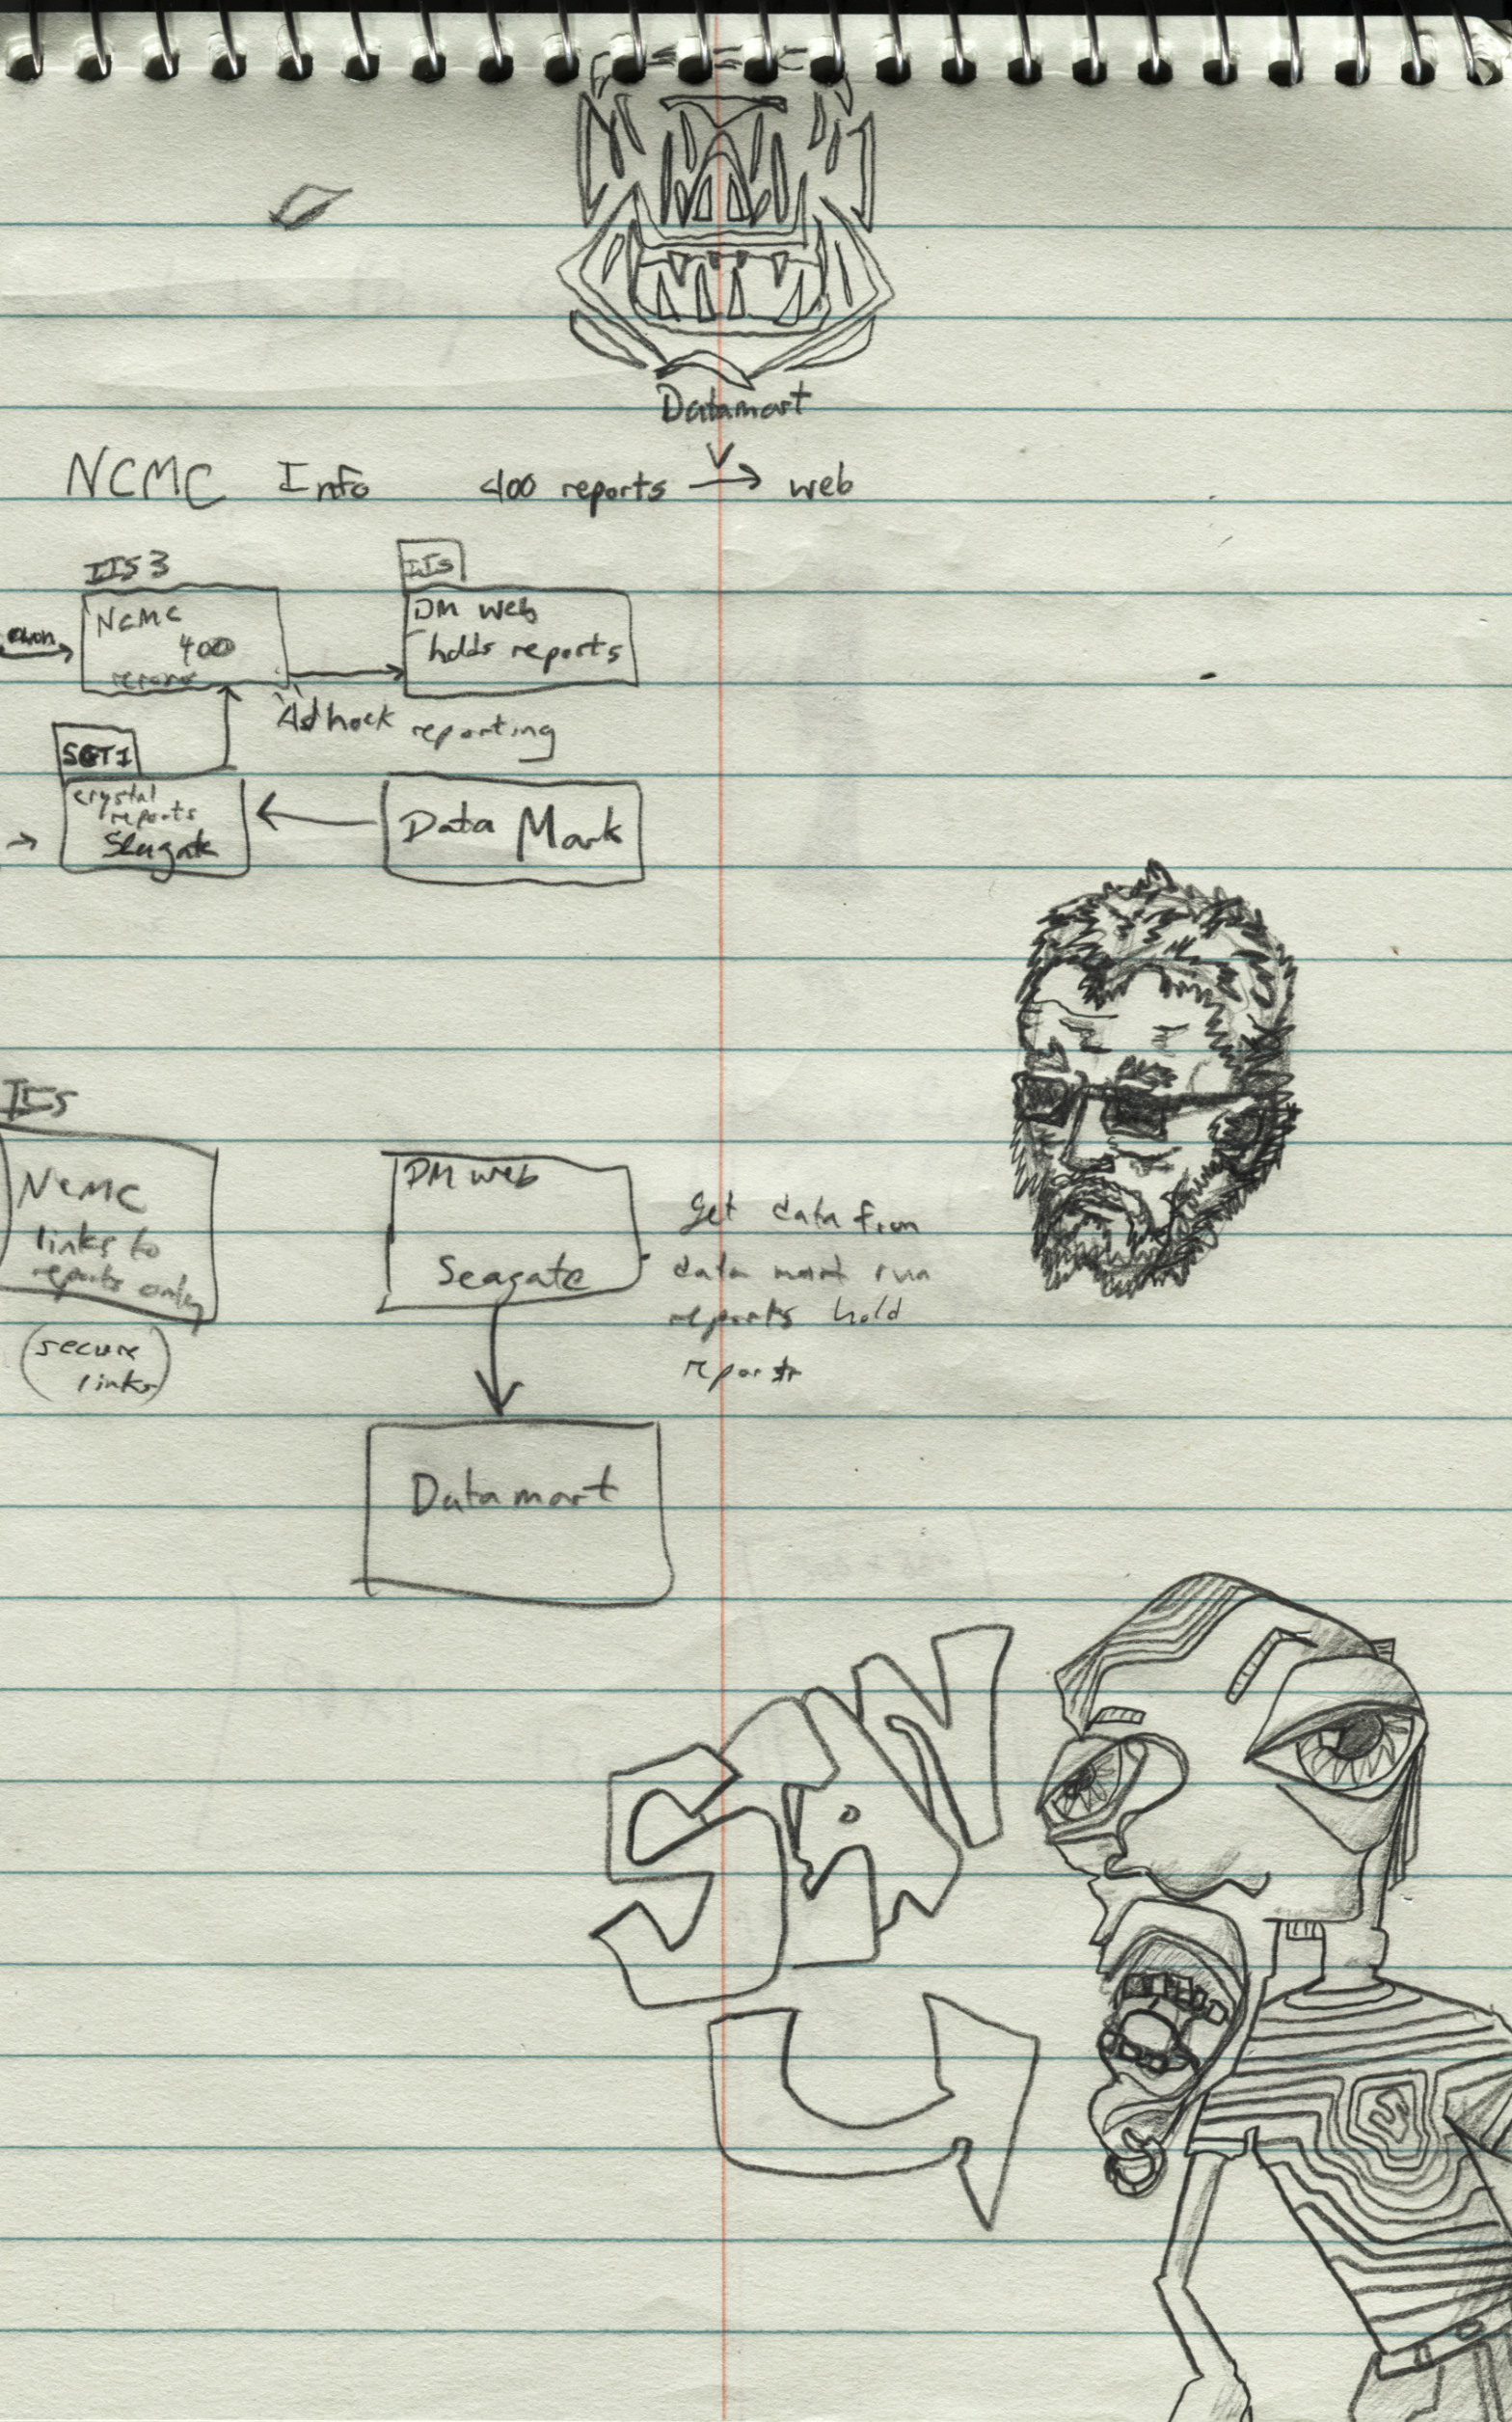 Datamart
NCMC Info 400 reports → web
IIS 3
NCMC
400
IIS
DM web
holds reports
Adhock reporting
SGT1
crystal
reports
Seagate
Data Mark
IIS
NCMC
links to
reports only
(secure
links)
DM web
Seagate
get data from
data mart run
reports hold
reports
Datamart